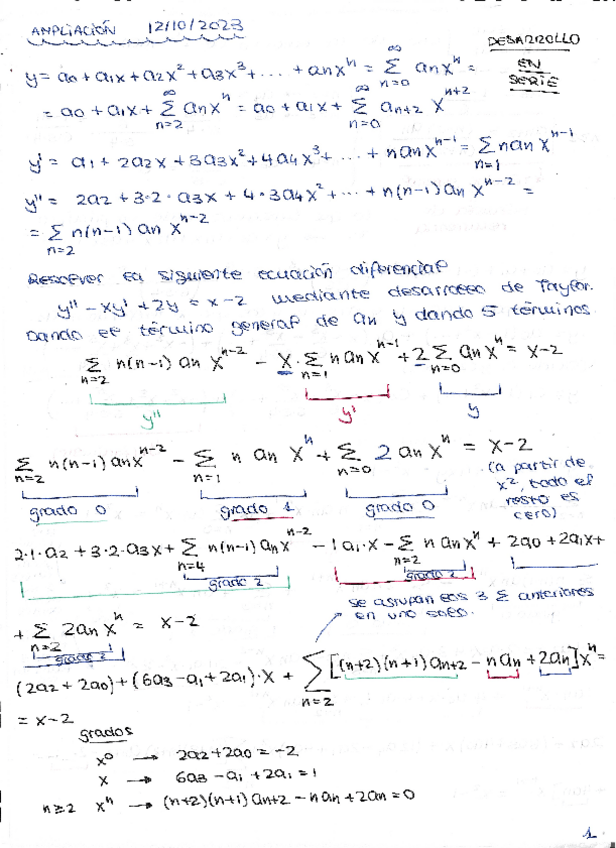 AMPLIACIÓN 12/10/2023
DESARROLLO
EN
SERIE
y = a0 + a1x + a2x² + a3x³ + ... + anxⁿ = ∑_{n=0}^{∞} anxⁿ =
= a0 + a1x + ∑_{n=2}^{∞} anxⁿ = a0 + a1x + ∑_{n=0}^{∞} an+2 x^{n+2}
y' = a1 + 2a2x + 3a3x² + 4a4x³ + ... + nanx^{n-1} = ∑_{n=1} nanx^{n-1}
y'' = 2a2 + 3·2·a3x + 4·3a4x² + ... + n(n-1)an x^{n-2} =
= ∑_{n=2} n(n-1)an x^{n-2}
Resolver la siguiente ecuación diferencial
y'' - xy' + 2y = x-2 mediante desarrollo de Taylor.
Dando el término general de an y dando 5 términos.
∑_{n=2} n(n-1)an x^{n-2} - x·∑_{n=1} nanx^{n-1} + 2∑_{n=0} anxⁿ = x-2
y'' y' y
∑_{n=2} n(n-1)anx^{n-2} - ∑_{n=1} n an xⁿ + ∑_{n=0} 2anxⁿ = x-2
grado 0 grado 1 grado 0
(a partir de
x², todo el
resto es
cero)
2·1·a2 + 3·2·a3x + ∑_{n=4} n(n-1)anx^{n-2} - 1a1·x - ∑_{n=2} nanxⁿ + 2a0 + 2a1x +
grado 2 grado 2
se agrupan los 3 ∑ anteriores
en uno solo.
+ ∑_{n=2} 2anxⁿ = x-2
grado 2
(2a2 + 2a0) + (6a3 - a1 + 2a1)·x + ∑_{n=2} [(n+2)(n+1)an+2 - nan + 2an]xⁿ =
= x-2
grados
x⁰ → 2a2 + 2a0 = -2
x → 6a3 - a1 + 2a1 = 1
n≥2 xⁿ → (n+2)(n+1)an+2 - nan + 2an = 0
1